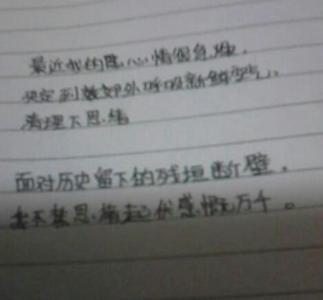 最近我的心情很急躁，
决定到郊外呼吸新鲜空气。
清理下思绪
面对历史留下的残垣断壁，
我不禁思绪起伏感慨万千。